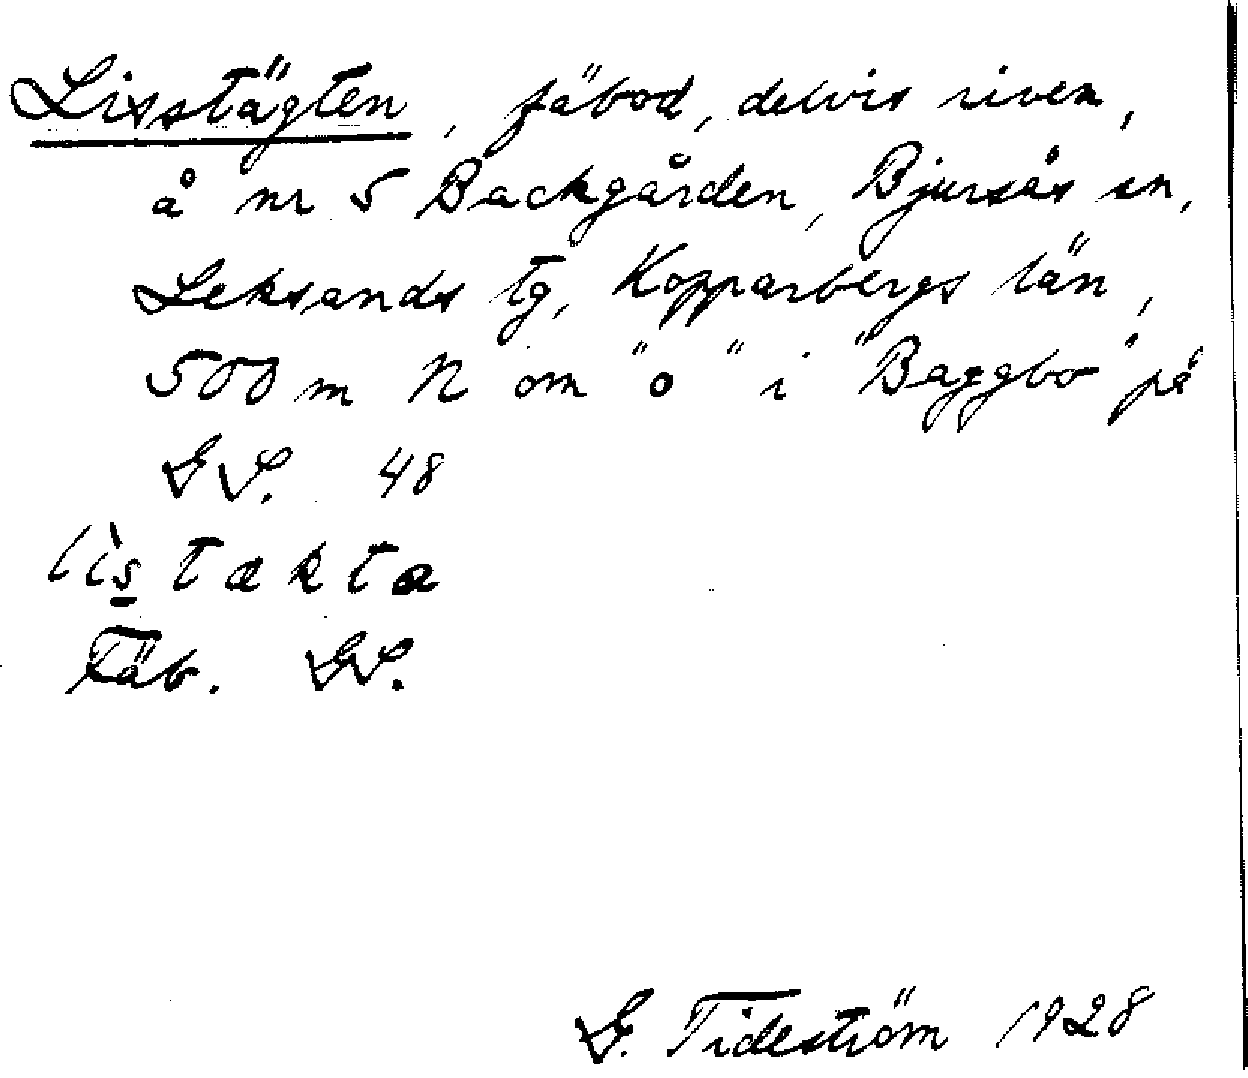 Lisstägten, fäbod, delvis riven,
å nr 5 Backgården, Bjursås sn,
Leksands tg, Kopparbergs län,
500 m N om "o" i "Baggbo" på
GS. 48
lìs takta
Fäb. GS.
G. Tideström 1928